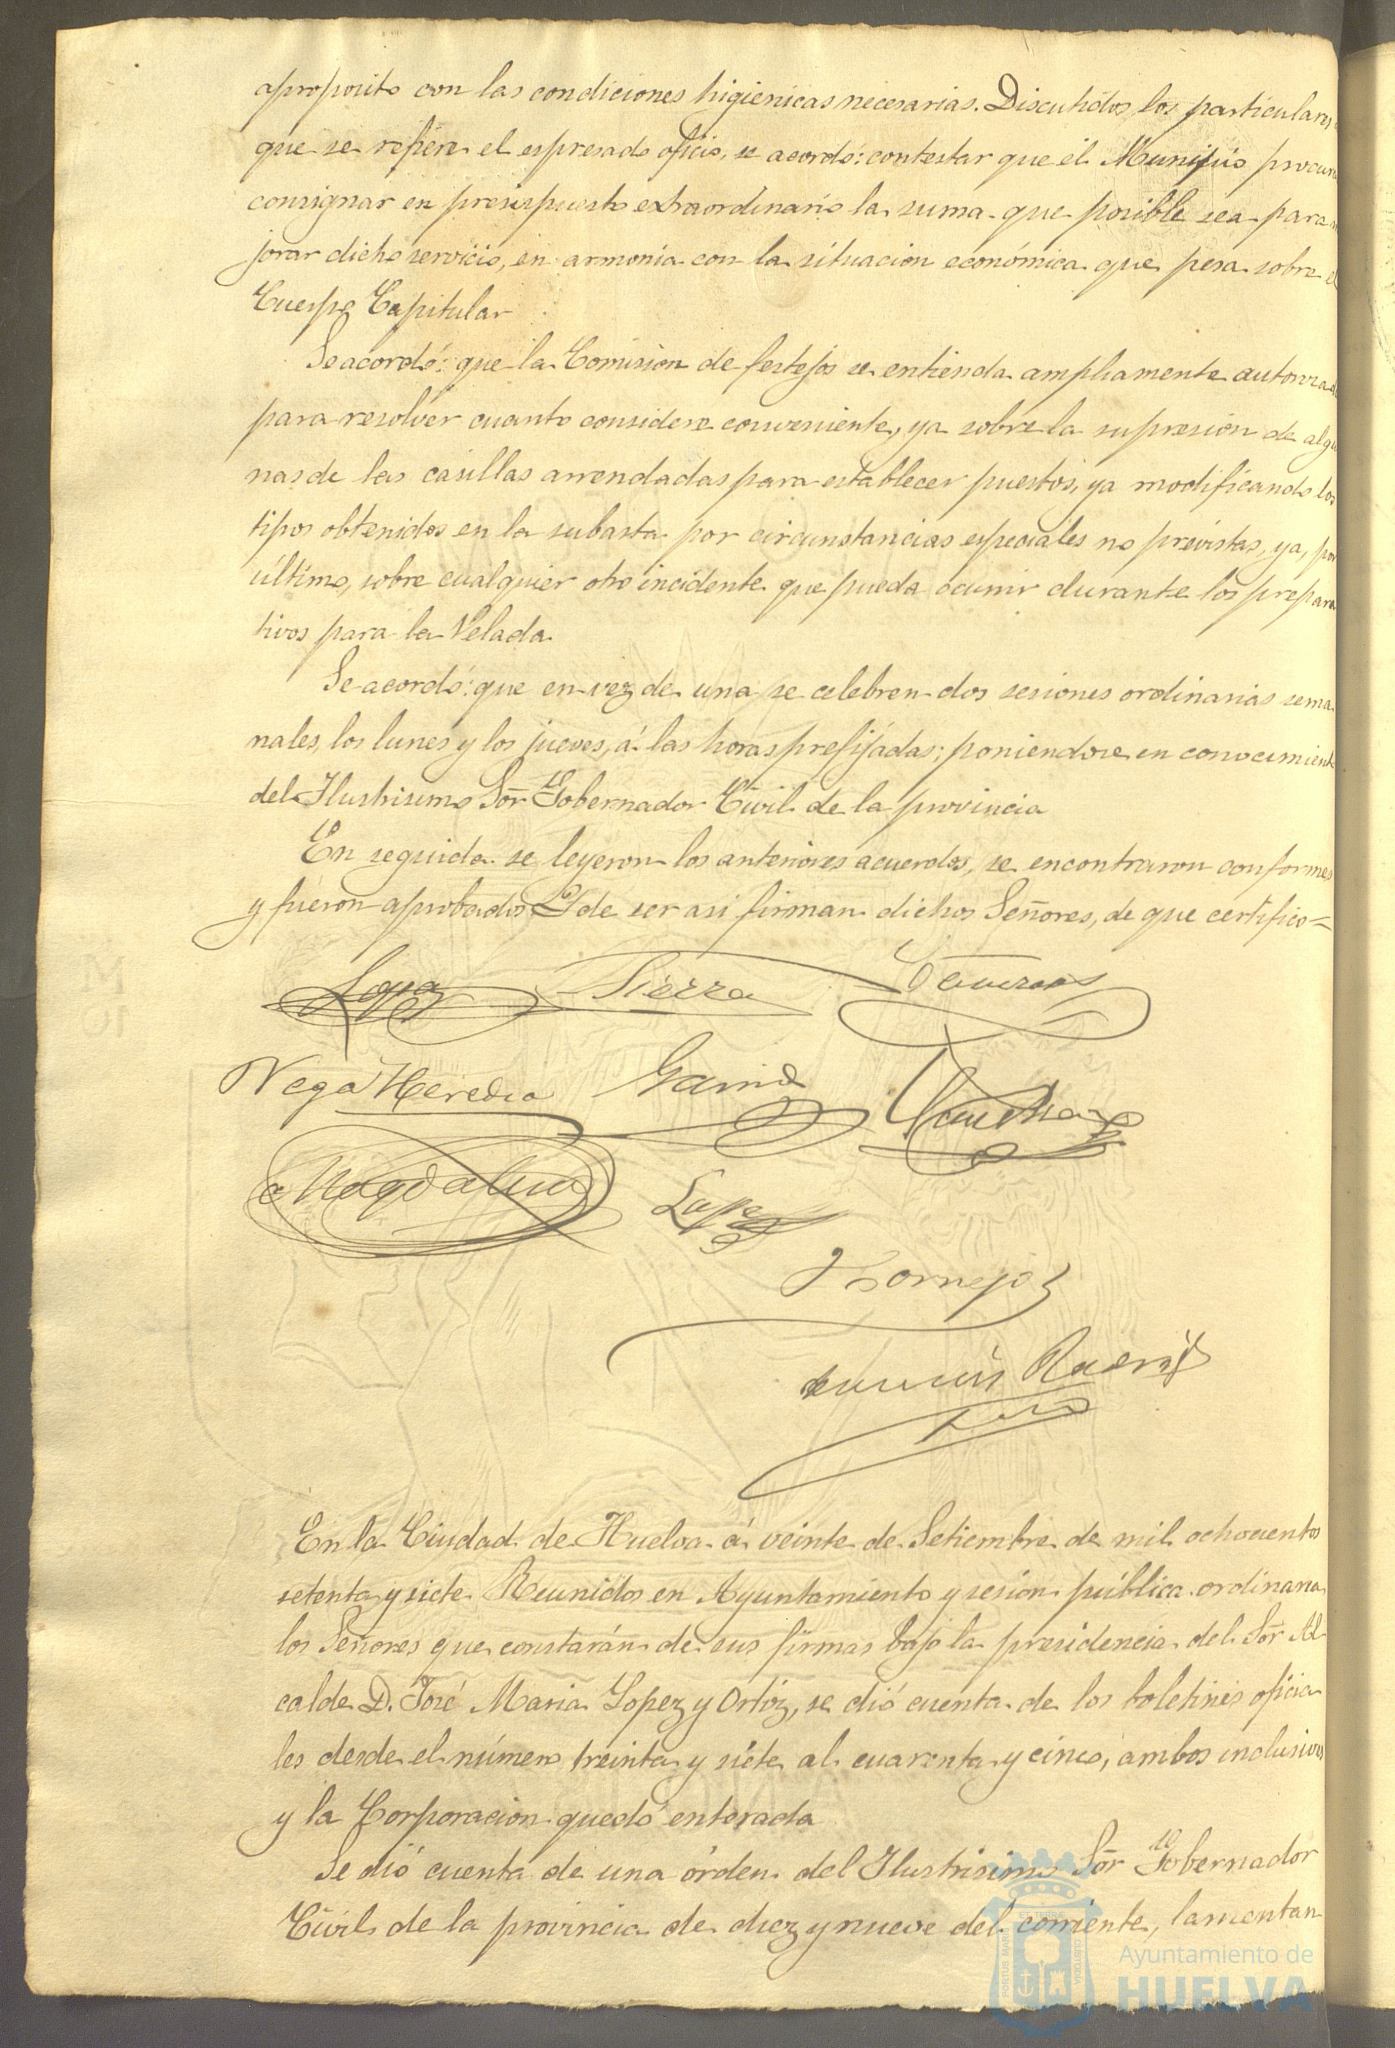 aproposito con las condiciones higienicas necesarias. Discutidos los particulares
que se refiere el espresado oficio, se acordó: contestar que el Municipio procura
consignar en presupuesto extraordinario la suma que posible sea para
jorar dicho servicio, en armonia con la situacion económica que pesa sobre el
Cuerpo Capitular
Se acordó: que la Comision de festejos se entienda ampliamente autoriza
para resolver cuanto considere conveniente, ya sobre la supresion de algu
nas de las casillas arrendadas para establecer puestos, ya modificando los
tipos obtenidos en la subasta por circunstancias especiales no previstas, ya, por
último, sobre cualquier otro incidente que pueda ocurrir durante los prepara
tivos para la Velada
Se acordó: que en vez de una se celebren dos sesiones ordinarias sema
nales, los lunes y los jueves, á las horas prefijadas; poniendose en conocimient
del Ilustrisimo Sor. Gobernador Civil de la provincia
En seguida se leyeron los anteriores acuerdos, se encontraron conformes
y fueron aprobados Y de ser asi firman dichos Señores, de que certifico=
Lopez Sierra
Vega Heredia Garrido
Magdalena Lopez
Cornejo
En la Ciudad de Huelva á veinte de Setiembre de mil ochocientos
setenta y siete Reunidos en Ayuntamiento y sesion pública ordinaria
los Señores que constarán de sus firmas bajo la presidencia del Sor. Al
calde D. José Maria Lopez y Ortiz, se dió cuenta de los boletines oficia
les desde el número treinta y siete al cuarenta y cinco, ambos inclusives
y la Corporacion quedó enterada
Se dió cuenta de una órden del Ilustrisimo Sor. Gobernador
Civil de la provincia de diez y nueve del corriente, lamentan
Ayuntamiento de
HUELVA